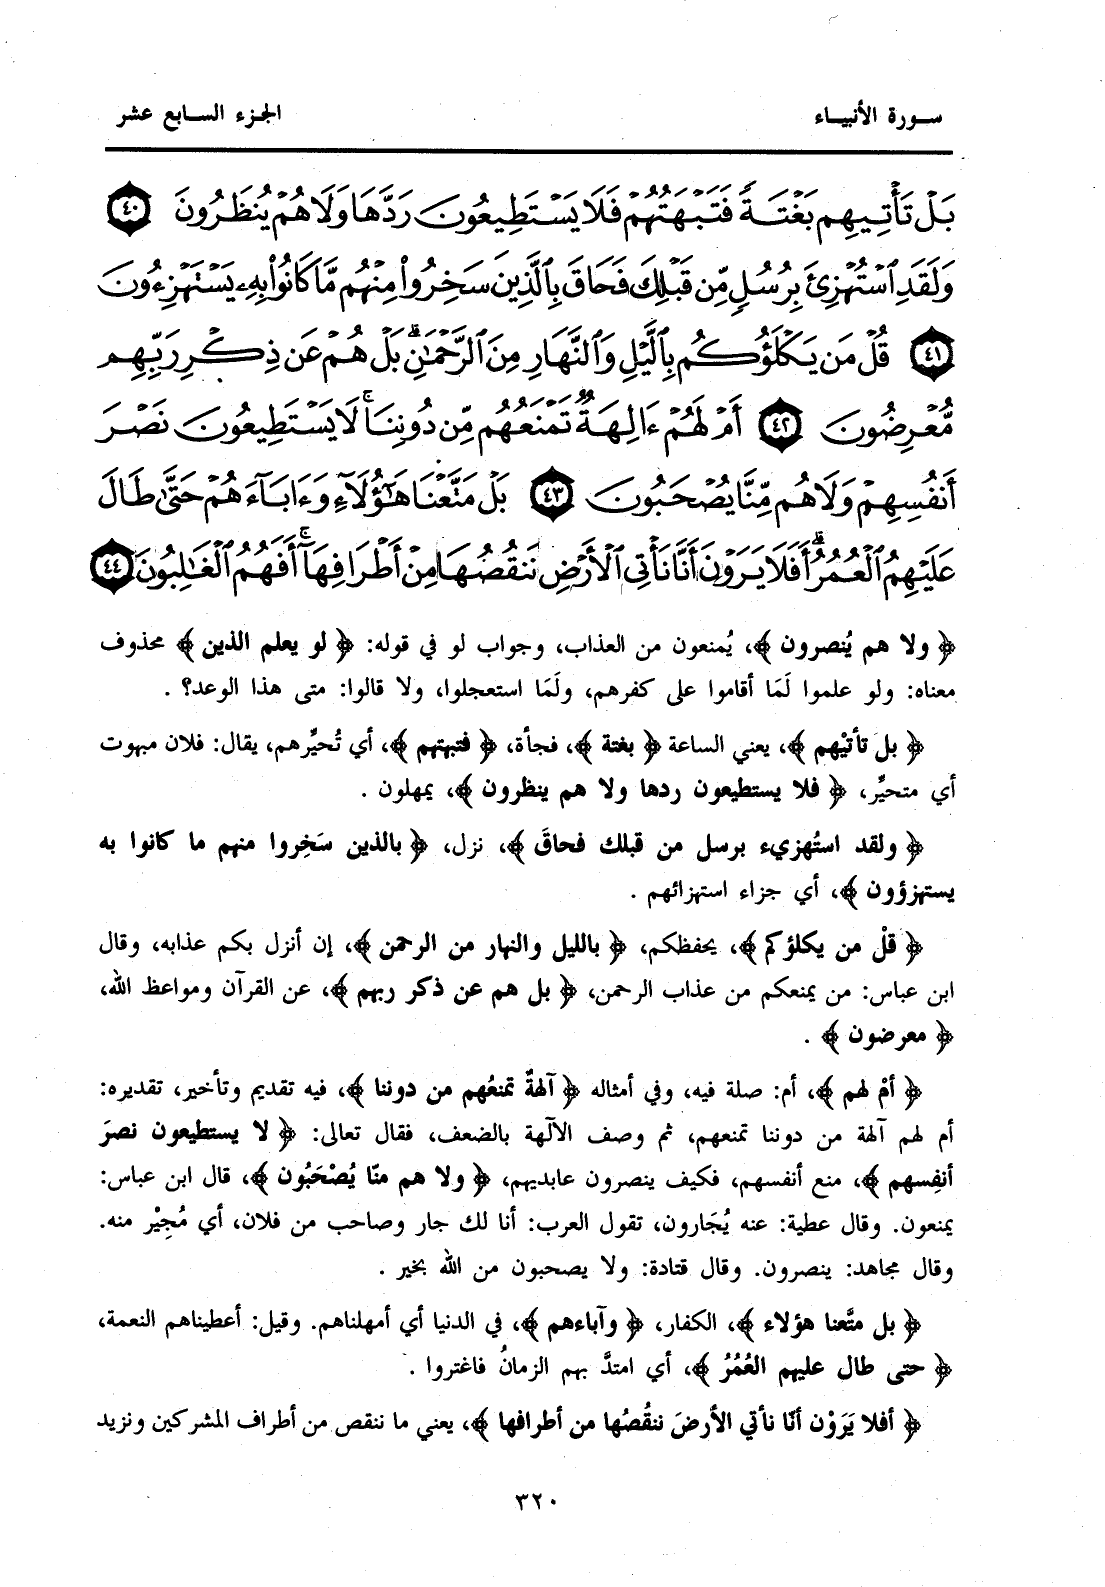 سورة الأنبياء
الجزء السابع عشر
بَلْ تَأْتِيهِم بَغْتَةً فَتَبْهَتُهُمْ فَلَا يَسْتَطِيعُونَ رَدَّهَا وَلَا هُمْ يُنظَرُونَ ٤٠
وَلَقَدِ ٱسْتُهْزِئَ بِرُسُلٍ مِّن قَبْلِكَ فَحَاقَ بِٱلَّذِينَ سَخِرُوا۟ مِنْهُم مَّا كَانُوا۟ بِهِۦ يَسْتَهْزِءُونَ
٤١ قُلْ مَن يَكْلَؤُكُم بِٱلَّيْلِ وَٱلنَّهَارِ مِنَ ٱلرَّحْمَٰنِ ۗ بَلْ هُمْ عَن ذِكْرِ رَبِّهِم
مُّعْرِضُونَ ٤٢ أَمْ لَهُمْ ءَالِهَةٌ تَمْنَعُهُم مِّن دُونِنَا ۚ لَا يَسْتَطِيعُونَ نَصْرَ
أَنفُسِهِمْ وَلَا هُم مِّنَّا يُصْحَبُونَ ٤٣ بَلْ مَتَّعْنَا هَٰٓؤُلَآءِ وَءَابَآءَهُمْ حَتَّىٰ طَالَ
عَلَيْهِمُ ٱلْعُمُرُ ۗ أَفَلَا يَرَوْنَ أَنَّا نَأْتِى ٱلْأَرْضَ نَنقُصُهَا مِنْ أَطْرَافِهَآ ۚ أَفَهُمُ ٱلْغَٰلِبُونَ ٤٤
﴿ ولا هم يُنصرون ﴾، يُمنعون من العذاب، وجواب لو في قوله: ﴿ لو يعلم الذين ﴾ محذوف
معناه: ولو علموا لَمَا أقاموا على كفرهم، ولَمَا استعجلوا، ولا قالوا: متى هذا الوعد؟ .
﴿ بل تأتيْهم ﴾، يعني الساعة ﴿ بغتة ﴾، فجأة، ﴿ فتبهتهم ﴾، أي تُحيِّرهم، يقال: فلان مبهوت
أي متحيِّر، ﴿ فلا يستطيعون ردها ولا هم ينظرون ﴾، يمهلون .
﴿ ولقد استُهزيء برسل من قبلك فحاقَ ﴾، نزل، ﴿ بالذين سَخِروا منهم ما كانوا به
يستهزؤون ﴾، أي جزاء استهزائهم .
﴿ قلْ من يكلؤكم ﴾، يحفظكم، ﴿ بالليل والنهار من الرحمن ﴾، إن أنزل بكم عذابه، وقال
ابن عباس: من يمنعكم من عذاب الرحمن، ﴿ بل هم عن ذكر ربهم ﴾، عن القرآن ومواعظ الله،
﴿ معرضون ﴾ .
﴿ أمْ لهم ﴾، أم: صلة فيه، وفي أمثاله ﴿ آلهةٌ تمنعُهم من دوننا ﴾، فيه تقديم وتأخير، تقديره:
أم لهم آلهة من دوننا تمنعهم، ثم وصف الآلهة بالضعف، فقال تعالى: ﴿ لا يستطيعون نصرَ
أنفِسهم ﴾، منع أنفسهم، فكيف ينصرون عابديهم، ﴿ ولا هم منّا يُصْحَبُون ﴾، قال ابن عباس:
يمنعون. وقال عطية: عنه يُجَارون، تقول العرب: أنا لك جار وصاحب من فلان، أي مُجِيْر منه.
وقال مجاهد: ينصرون. وقال قتادة: ولا يصحبون من الله بخير .
﴿ بل متَّعنا هؤلاء ﴾، الكفار، ﴿ وآباءهم ﴾، في الدنيا أي أمهلناهم. وقيل: أعطيناهم النعمة،
﴿ حتى طال عليهم العُمُرُ ﴾، أي امتدَّ بهم الزمانُ فاغتروا .
﴿ أفلا يَرَوْن أنّا نأتي الأرضَ ننقُصُها من أطرافها ﴾، يعني ما ننقص من أطراف المشركين ونزيد
٣٢٠